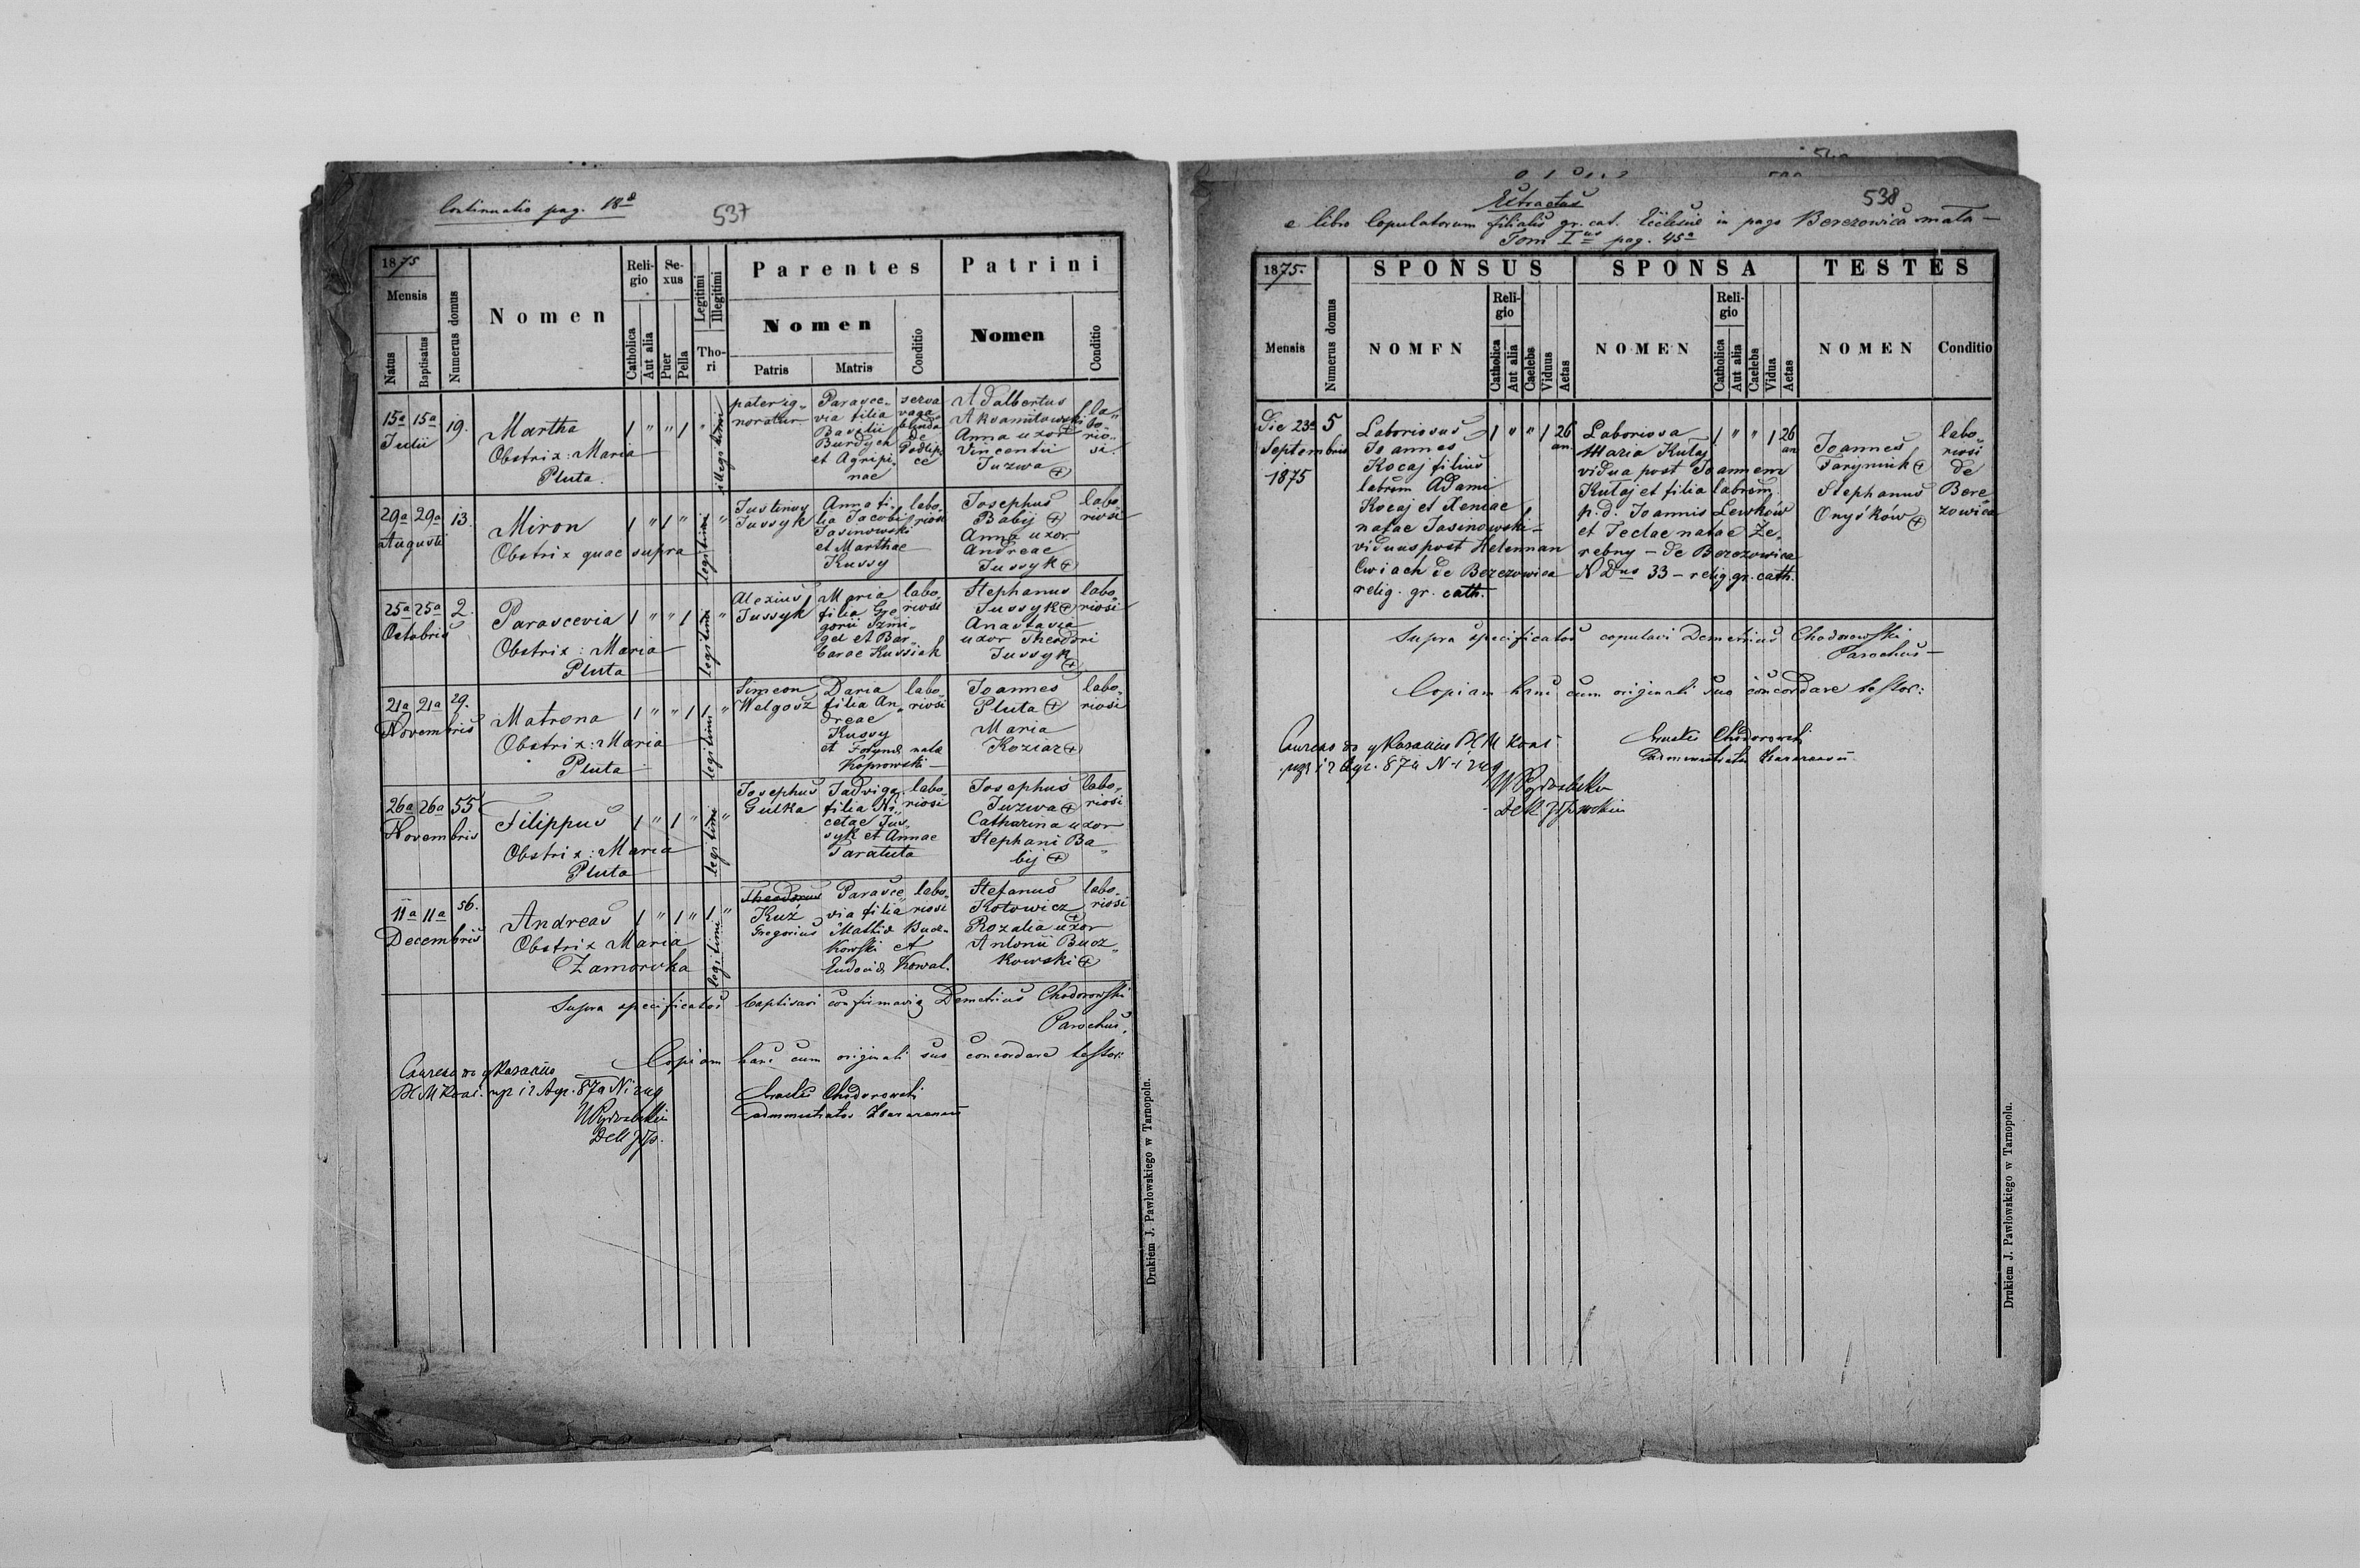 Continuatio pag. 18a
537
1875
Mensis
Natus
Baptisatus
Numerus domus
Nomen
Religio
Catholica
Aut alia
Sexus
Puer
Pella
Legitimi
Illegitimi
Thori
Parentes
Nomen
Patris
Matris
Conditio
Patrini
Nomen
Conditio
15a 15a
Julii
19.
Martha
Obstrix: Maria
Pluta.
1 " " 1 "
illegitimi
pater ig„
noratur
Parasce„
via filia
Basilii
Burdych
et Agripi„
nae
serva
vaga„
bunda
de
Podlip„
ce
Adalbertus
Aksamitowski
Anna uxor
Vincentii
Juzwa
la„
bo„
rio„
si.
29a 29a
Augusti
13.
Miron
Obstrix quae supra
1 " 1 "
legitimi
"
Justinus
Jussyk
Anna fi„
lia Jacobi
Jasinowski
et Marthae
Kussy
labo„
riosi
Josephus
Babij
Anna uxor
Andreae
Jussyk
labo„
riosi
25a 25a
Octobris
2.
Parascevia
Obstrix: Maria
Pluta
1 " " 1 1 "
legitimi
Alexius
Jussyk
Maria
filia Gre
gorii Szmi„
gel et Bar„
barae Kussiak
labo„
riosi
Stephanus
Jussyk
Anastasia
uxor Theodori
Jussyk
labo„
riosi
21a 21a
Novembris
29.
Matrona
Obstrix: Maria
Pluta
1 " " 1 1 "
legitimi
Simeon
Welgosz
Daria
filia An„
dreae
Kussy
et natae
Koprowski
labo„
riosi
Joannes
Pluta
Maria
Koziar
labo„
riosi
26a 26a
Novembris
55
Filippus
Obstrix: Maria
Pluta
1 " 1 " "
legitimi
Josephus
Gulka
Jadviga
filia Ni„
cetae Jus„
syk et Annae
Taratuta
labo„
riosi
Josephus
Juzwa
Catharina uxor
Stephani Ba„
bij
labo„
riosi
11a 11a
Decembris
56.
Andreas
Obstrix Maria
Zamorska
1 " 1 " 1 "
legitimi
Theodorus
Kuź
Gregorius
Parasce„
via filia
Mathiae Bucz„
kowski et
Eudociae Kowal.
labo„
riosi
Stefanus
Kotowicz
Rozalia uxor
Antonii Bucz„
kowski
labo„
riosi
Supra specificatos baptisavi confirmavig Demetrius Chodorowski
Parochus.
Copiam hanc cum originali suo concordare testor:
Chodorowski
administrator
Drukiem J. Pawłowskiego w Tarnopolu.
538
Extractus
e libro Copulatorum filialis gr. cat. Ecclesiae in pago Berezowica mała —
Tom I us pag. 45a
1875.
Mensis
Numerus domus
SPONSUS
NOMEN
Religio
Catholica
Aut alia
Caelebs
Viduus
Aetas
SPONSA
NOMEN
Religio
Catholica
Aut alia
Caelebs
Vidua
Aetas
TESTES
NOMEN
Conditio
Die 23a
Septembris
1875
5
Laboriosus
Joannes
Kocaj filius
labrum Adami
Kocaj et Xeniae
natae Jasinowski –
viduus post Helennam
Cwiach de Berezowica
relig. gr. cath.
1 " " 1 26
an
Laboriosa
Maria Kutaj
vidua post Joannem
Kutaj et filia labrum
p. d. Joannis Lewków
et Teclae natae Że„
rebny – de Berezowica
N Dus 33 – relig gr. cath.
1 " " 1 26
an
Joannes
Taryniuk
Stephanus
Onyśków
labo„
riosi
de
Bere„
zowica
Supra specificatos copulavi Demetrius Chodorowski
Parochus —
Copiam hanc cum originali suo concordare testor:
Chodorowski
Drukiem J. Pawłowskiego w Tarnopolu.